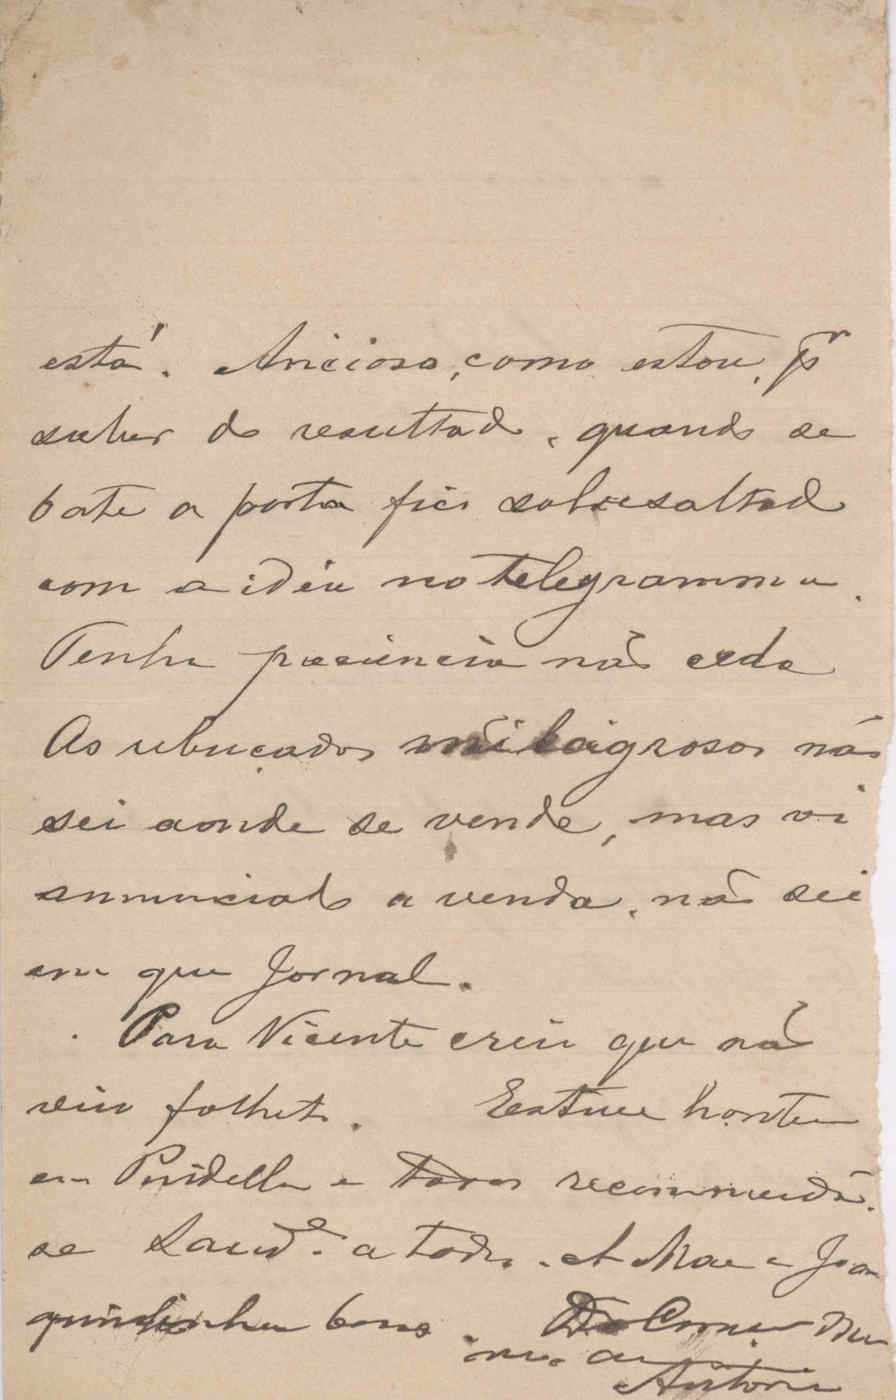 está. Ancioso, como estou, pr
saber do resultado, quando se
bate a porta fico sobresaltado
com a idéa no telegramma.
Tenha paciencia não ceda
As rebuçados milagrosos não
sei aonde se vende, mas vi
annunciado a venda, não sei
em que Jornal.
Para Vicente creio que não
veio folheto. Estive hontem
em e todos recommendão.
se Saude a todos. A Mãe e Joa
quinsinha bons. Do
Antonio